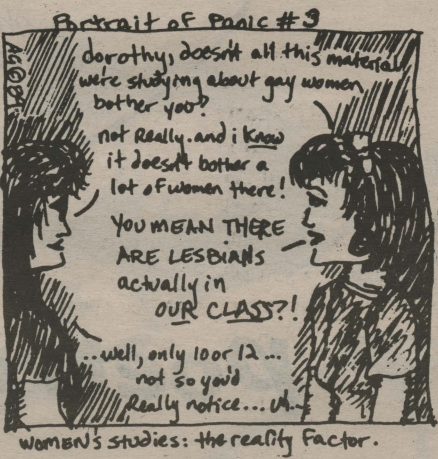 Portrait of Panic # 3
dorothy, doesn't all this material
we're studying about gay women
bother you?
not Really. and i know
it doesn't bother a
lot of women there!
YOU MEAN THERE
ARE LESBIANS
actually in
OUR CLASS?!
..well, only 10 or 12 ...
not so you'd
Really notice... uh..
WOMEN'S studies: the reality Factor.